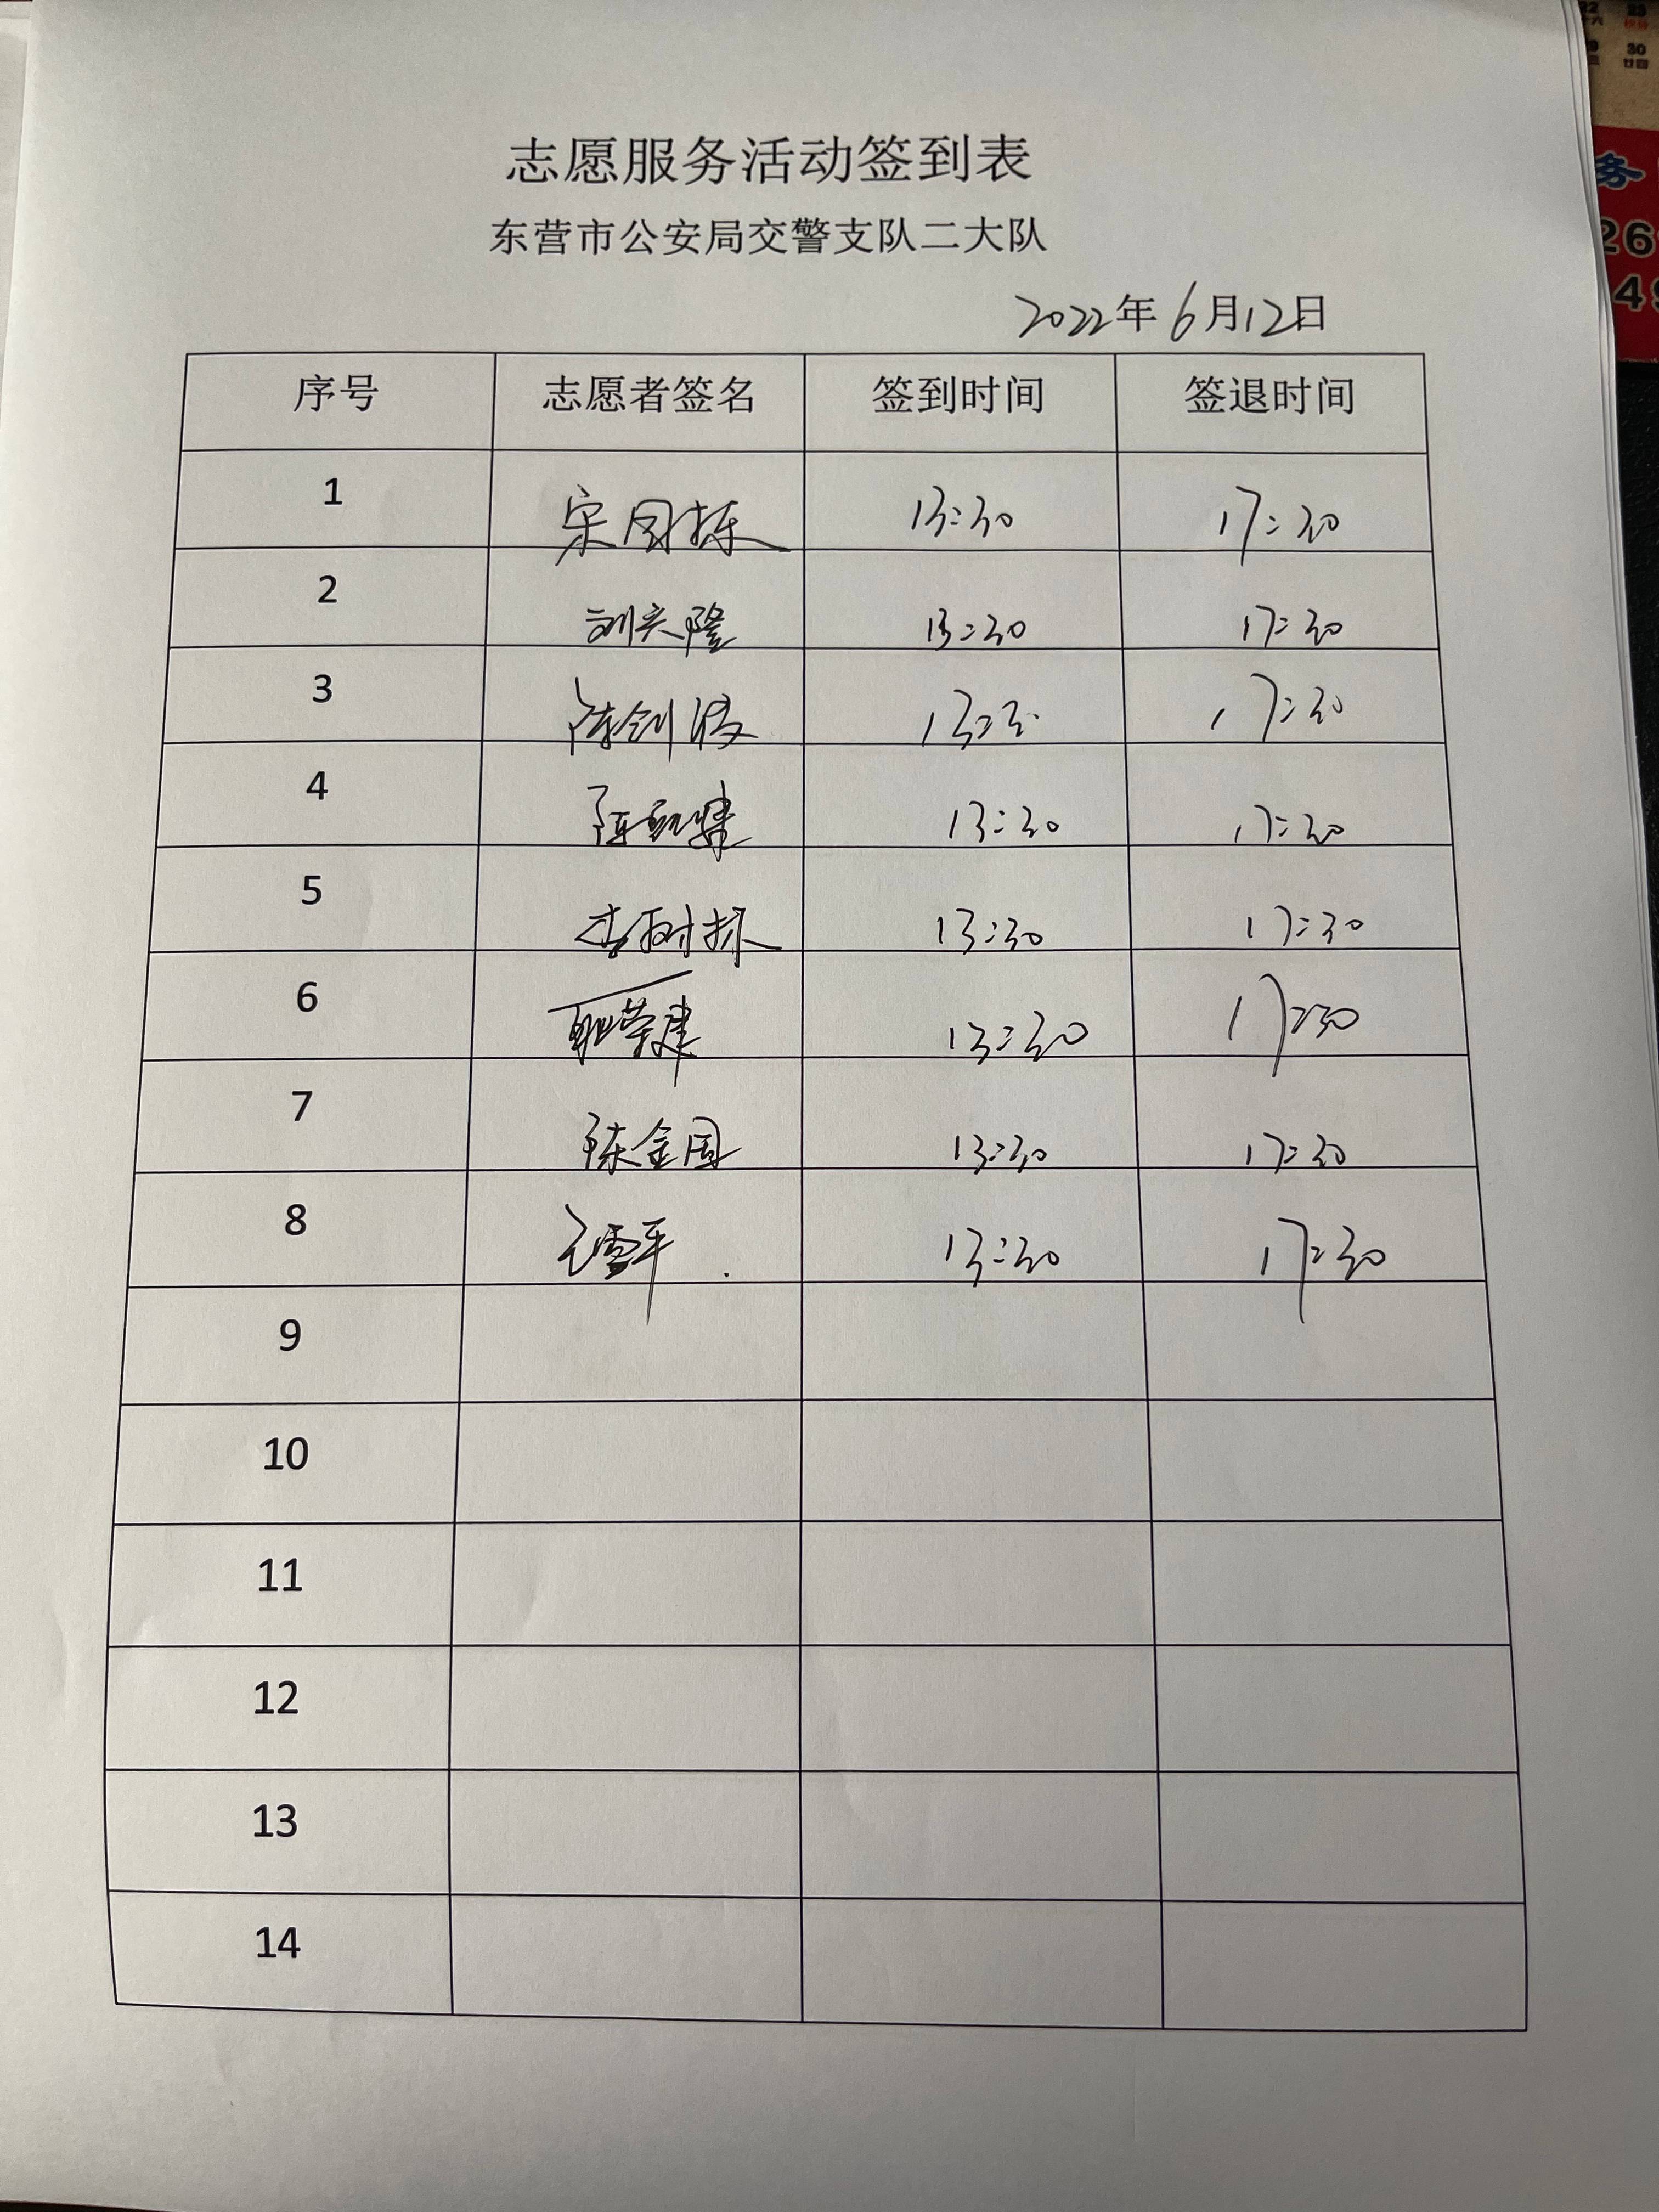 志愿服务活动签到表
东营市公安局交警支队二大队
2022年6月12日
序号 志愿者签名 签到时间 签退时间
1 宋国栋 13:30 17:30
2 刘兴隆 13:30 17:30
3 陈剑波 13:30 17:30
4 陈 13:30 17:30
5 李树栋 13:30 17:30
6 耿荣建 13:30 17:30
7 陈金国 13:30 17:30
8 雪平 13:30 17:30
9
10
11
12
13
14
23
30
廿四
务
26
49